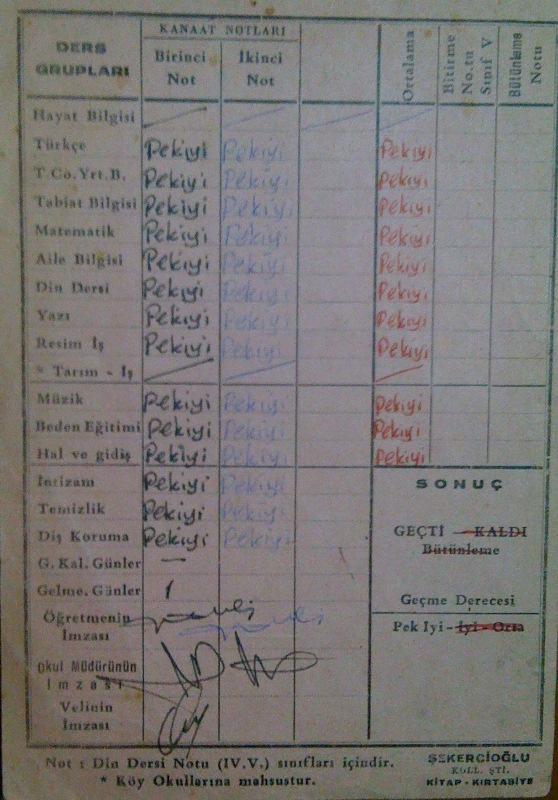 DERS GRUPLARI
KANAAT NOTLARI
Birinci Not
İkinci Not
Ortalama
Bitirme No.tu Sınıf V
Bütünleme Notu
Hayat Bilgisi
Türkçe Pekiyi Pekiyi Pekiyi
T.Co.Yrt.B. Pekiyi Pekiyi Pekiyi
Tabiat Bilgisi Pekiyi Pekiyi Pekiyi
Matematik Pekiyi Pekiyi Pekiyi
Aile Bilgisi Pekiyi Pekiyi Pekiyi
Din Dersi Pekiyi Pekiyi Pekiyi
Yazı Pekiyi Pekiyi Pekiyi
Resim İş Pekiyi Pekiyi Pekiyi
* Tarım - İş
Müzik Pekiyi Pekiyi Pekiyi
Beden Eğitimi Pekiyi Pekiyi Pekiyi
Hal ve gidiş Pekiyi Pekiyi Pekiyi
İntizam Pekiyi Pekiyi
Temizlik Pekiyi Pekiyi
Diş Koruma Pekiyi Pekiyi
G. Kal. Günler —
Gelme. Günler 1
Öğretmenin İmzası
Okul Müdürünün İmzası
Velinin İmzası
SONUÇ
GEÇTİ - KALDI
Bütünleme
Geçme Derecesi
Pek İyi - İyi - Orta
Not : Din Dersi Notu (IV.V.) sınıfları içindir.
* Köy Okullarına mahsustur.
ŞEKERCİOĞLU
KOLL. ŞTİ.
KİTAP - KIRTASİYE